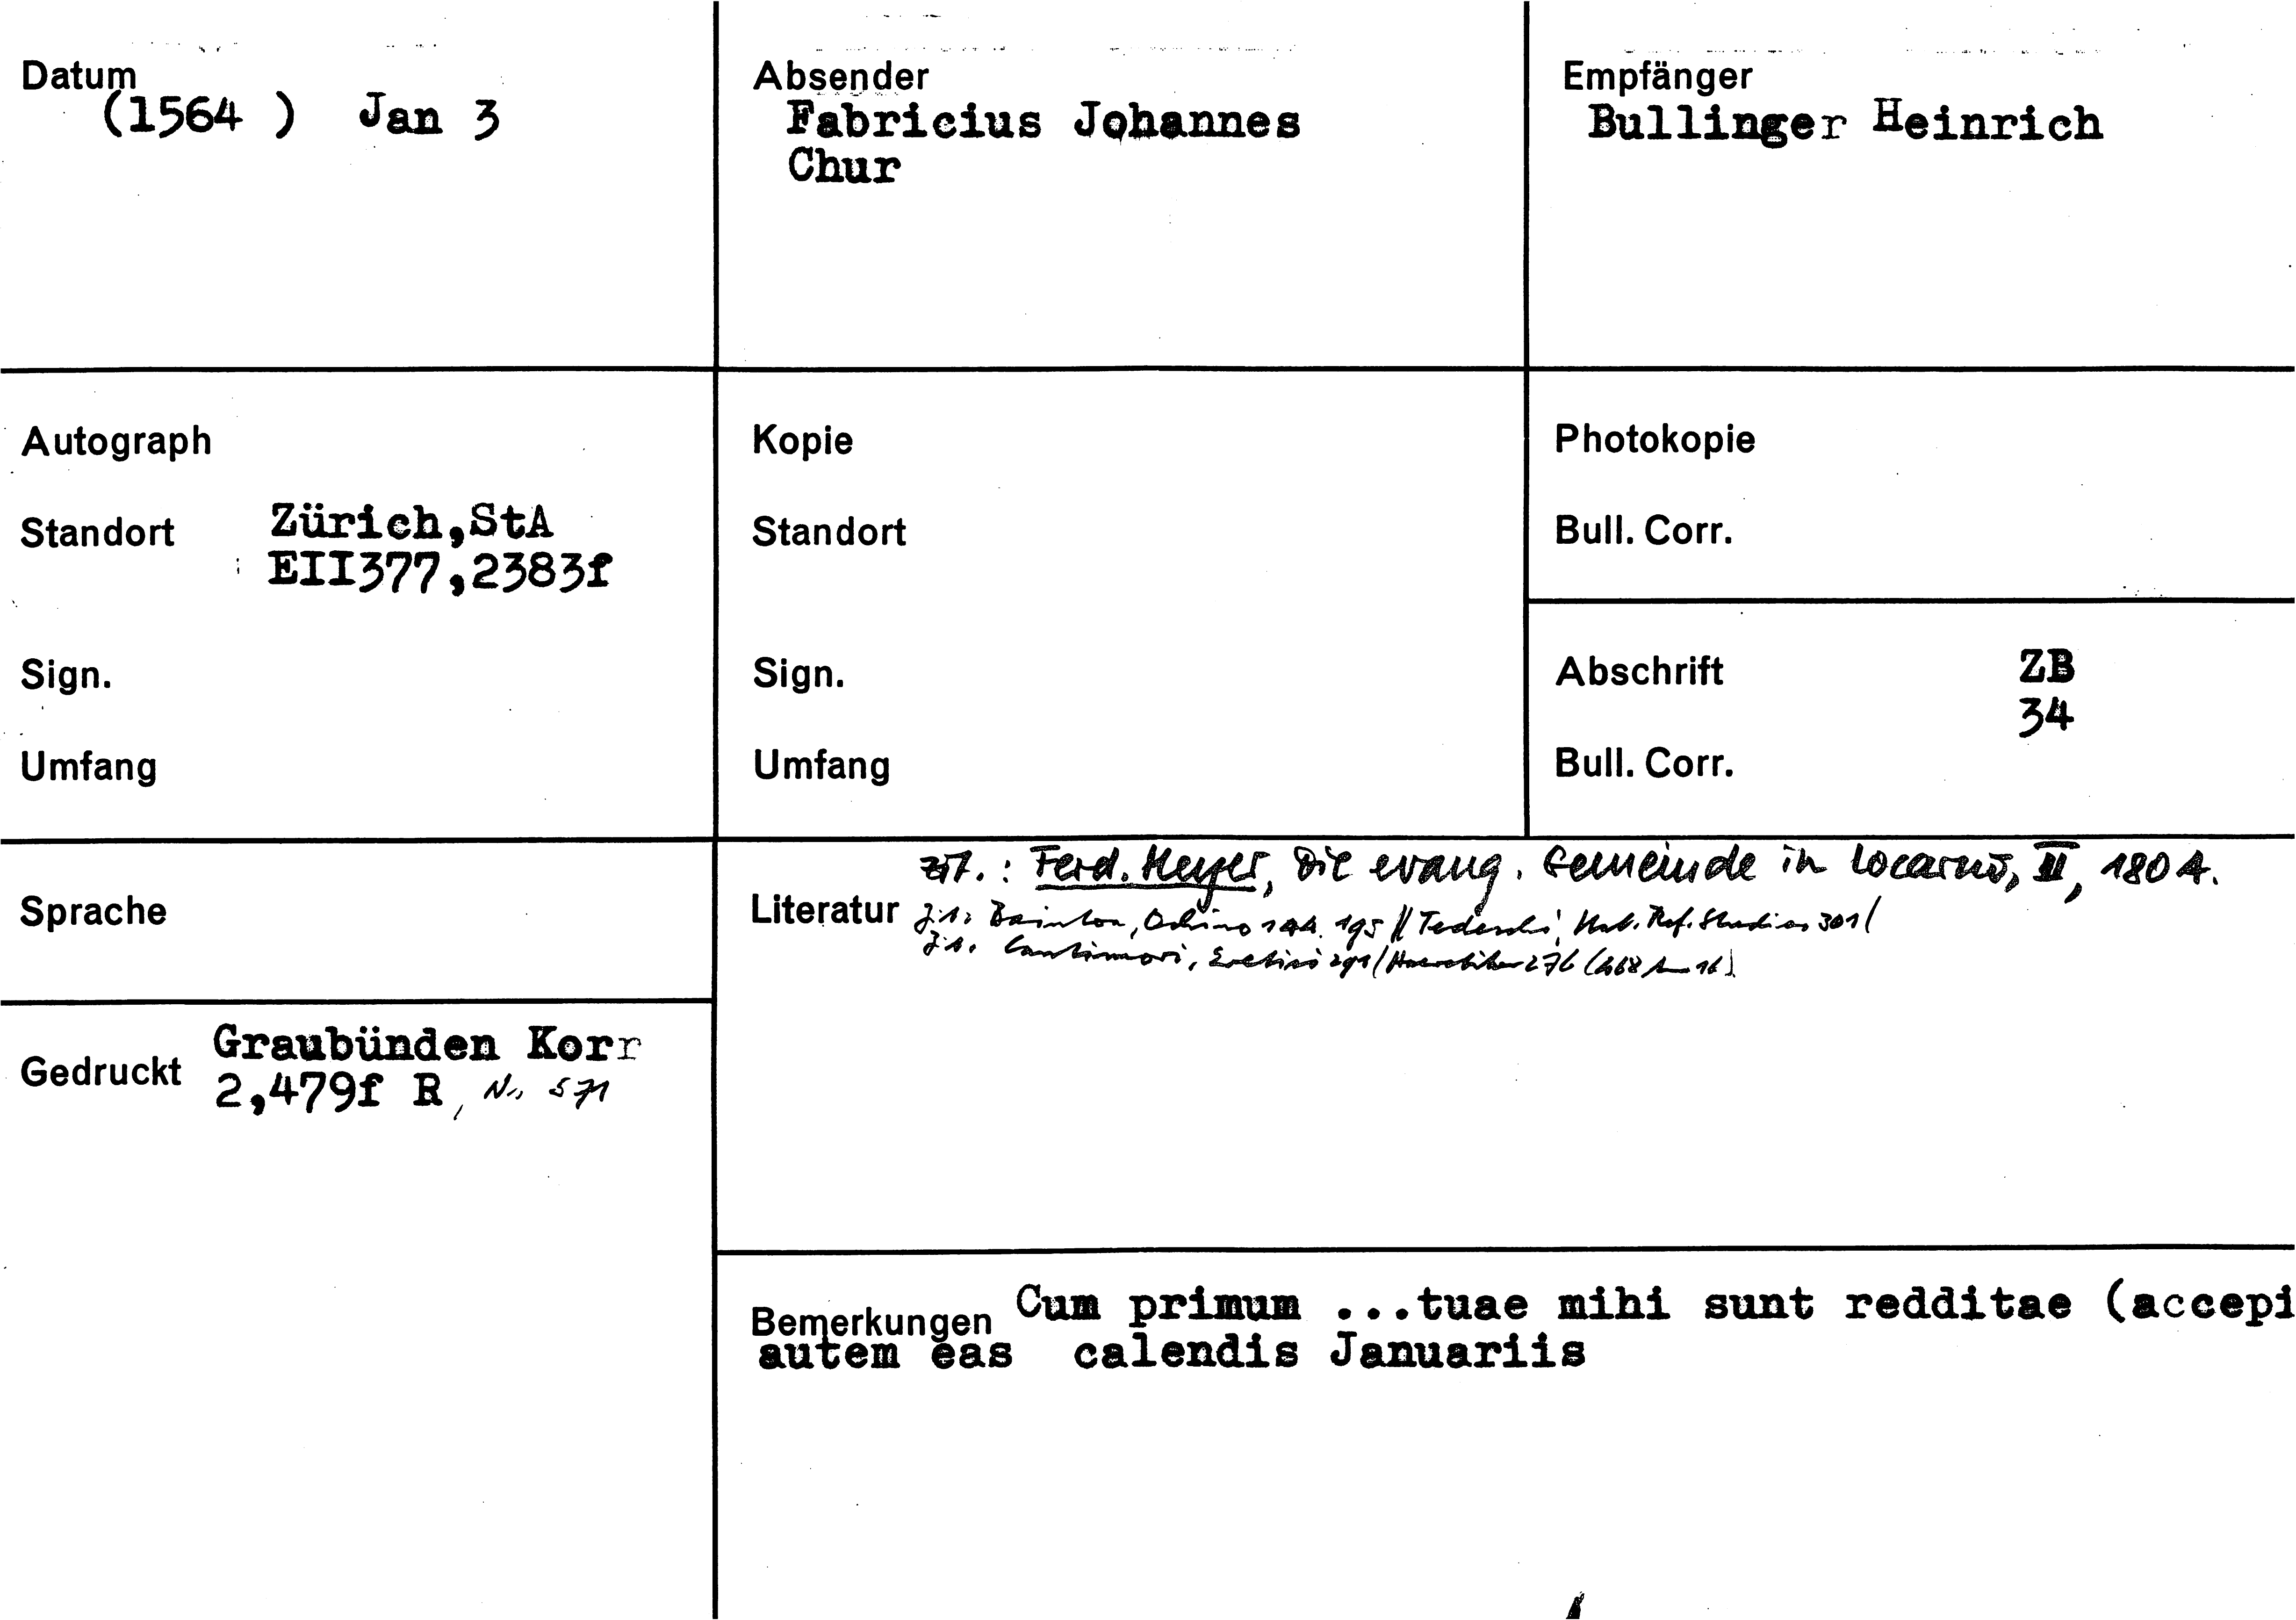 Datum
(1564 ) Jan 3
Absender
Fabricius Johannes
Chur
Empfänger
Bullinger Heinrich
Autograph
Standort Zürich,StA
EII377,2383f
Sign.
Umfang
Kopie
Standort
Sign.
Umfang
Photokopie
Bull. Corr.
Abschrift ZB
34
Bull. Corr.
Sprache
Gedruckt Graubünden Korr
2,479f R, No 571
zit.: Ferd. Meyer, Die evang. Gemeinde in Locarno, II, 180 A.
Literatur Bainton, Ochino 195 // Tedeschi, Ref. Studies 301/
Cantimori, Eretici 291/Haeretiker 276 (468 16)
Bemerkungen Cum primum ...tuae mihi sunt redditae (accepi
autem eas calendis Januariis